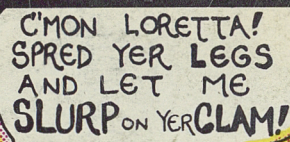 C'MON LORETTA!
SPRED YER LEGS
AND LET ME
SLURP ON YER CLAM!